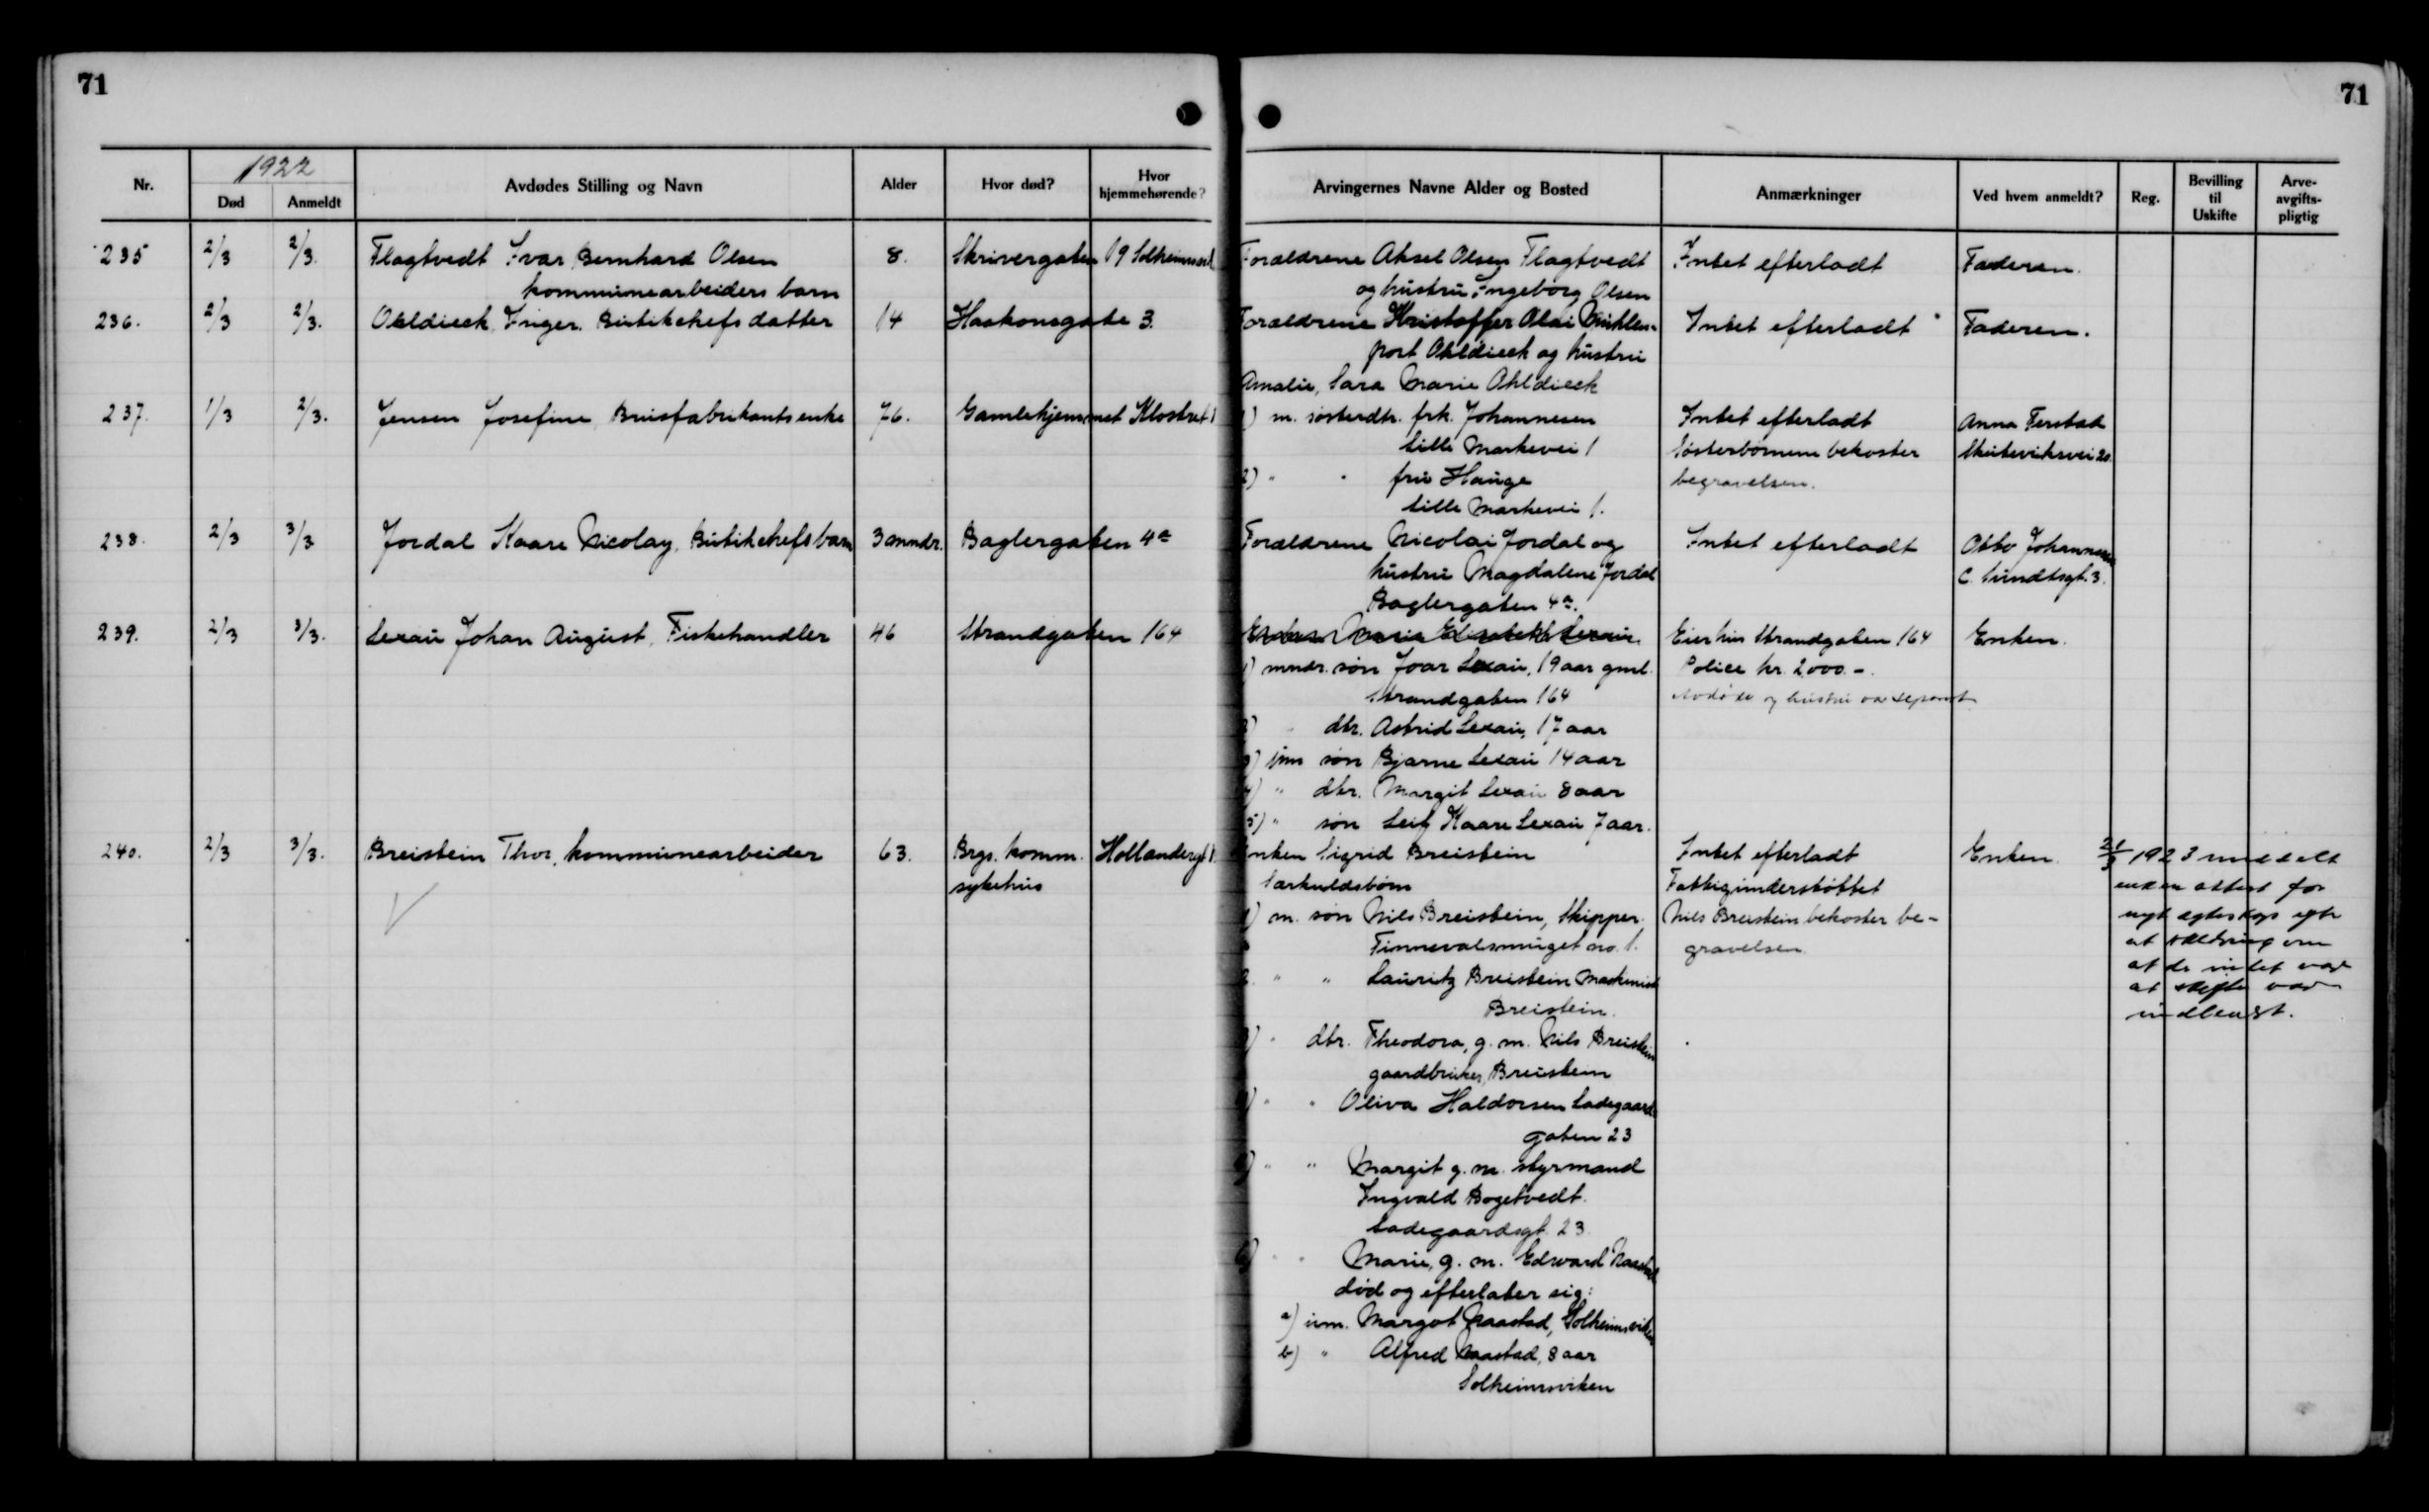 71
71
1922
Nr.
Død
Anmeldt
Avdødes Stilling og Navn
Alder
Hvor død?
Hvor hjemmehørende?
Arvingernes Navne Alder og Bosted
Anmærkninger
Ved hvem anmeldt?
Reg.
Bevilling til Uskifte
Arve-avgifts-pligtig
235 2/3 2/3. Flagtvedt Ivar Bernhard Olsen 8. Skrivergaten 19 Forældrene Aksel Olsen Flagtvedt Intet efterladt Faderen.
kommunearbeiders barn og hustru Ingeborg Olsen
236. 2/3 2/3. Ohldieck, Inger. Butikchefs datter 14 Haakonsgate 3. Forældrene Kristoffer Olai Mühlen-
port Ohldieck og hustru Intet efterladt Faderen.
Amalie, Sara Marie Ohldieck
237. 1/3 2/3. Jensen Josefine, Brusfabrikants enke 76. Gamlehjemmet Klostret 1) m. søsterdtr. frk. Johannesen Intet efterladt Anna Ferstad
Lille Markevei 1 Søsterbørnene bekoster Skuteviksvei 20.
2) " " fru Hauge begravelsen.
Lille Markevei 1.
238. 2/3 3/3 Jordal Kaare Nicolay, Butikchefs barn 3 mndr. Baglergaten 4a Forældrene Nicolai Jordal og Intet efterladt Otto Johannesen
hustru Magdalene Jordal C. Sundtsgt. 3.
Baglergaten 4a.
239. 2/3 3/3. Lexau Johan August, Fiskehandler 46 Strandgaten 164 Enken Maria Elisabeth Lexau Eier hus Strandgaten 164 Enken.
1) mndr. søn Joar Lexau, 19 aar gml. Police kr. 2,000.-.
Strandgaten 164 Avdøde og hustru var separert
2) " dtr. Astrid Lexau, 17 aar
3) um søn Bjarne Lexau 14 aar
4) " dtr. Margit Lexau 8 aar
5) " søn Leif Kaare Lexau 7 aar.
240. 2/3 3/3. Breistein Thor, kommunearbeider 63. Brgs. komm. Hollendergt Enken Sigrid Breistein Intet efterladt Enken. 1923 meddelt
sykehus Særkuldsbørn Fattigunderstøttet enken attest for
1) m. søn Nils Breistein, Skipper. Nils Breistein bekoster be- nyt egteskap
Finnevalsmuget no. 1. gravelsen. at om
2. " " Lauritz Breistein Maskinist at de intet var
Breistein. at skifte
3) " dtr. Theodora, g. m. Nils Breistein
gaardbruker, Breistein
4) " " Oliva Haldorsen Ladegaards
gaten 23
5) " " Margit g. m. styrmand
Ingvald Bogetvedt.
Ladegaardsgt. 23
6) " " Marie, g. m. Edward Naastad
død og efterlater sig:
a) um. Margot Naastad, Solheimsviken
b) " Alfred Naastad, 8 aar
Solheimsviken